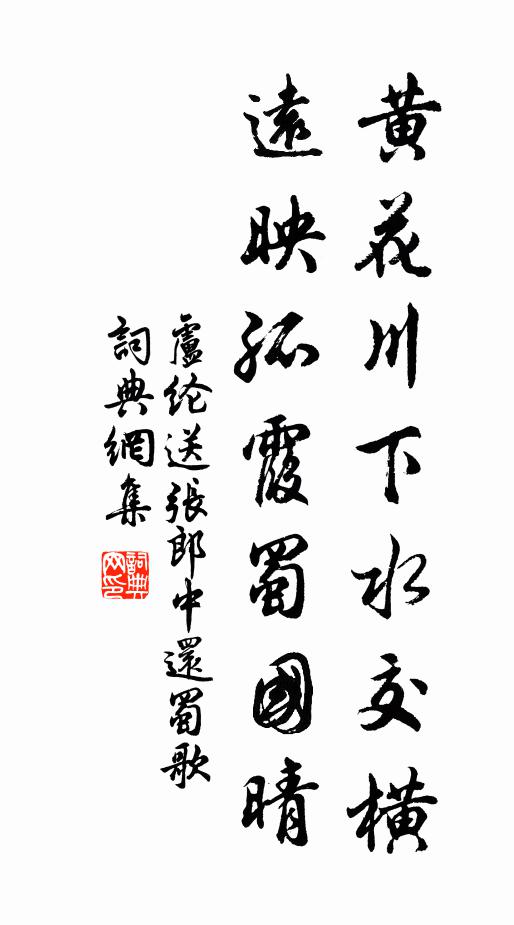 黄花川下水交橫
遠映孤霞蜀國晴
盧纶送張郎中還蜀歌
詞典網集
詞典网印